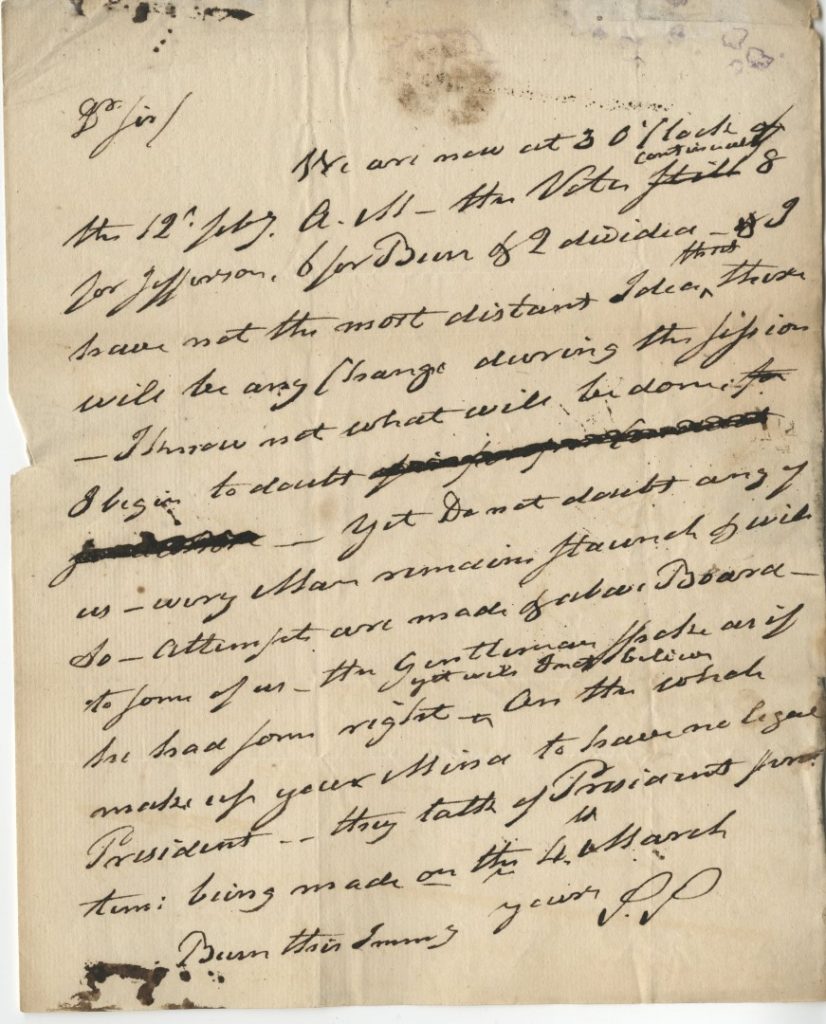 Dr. Sir/
We are now at 3 O'Clock of
continually
the 12th. feby. A. M - the Votes still 8
for Jefferson, 6 for Burr & 2 divided - & I
that
have not the most distant Idea ^ there
will be any Change during the session
- I know not what will be done
I begin to doubt
- yet Do not doubt any of
us - every Man remains staunch & will
do - Attempts are made of above Board -
to some of us - the Gentleman spoke as if
yet will I not believe
he had some right - On the whole
make up your Mind to have no legal
President -- they talk of President pro:
tem: being made on the 4.th March
yours
Burn this Immy